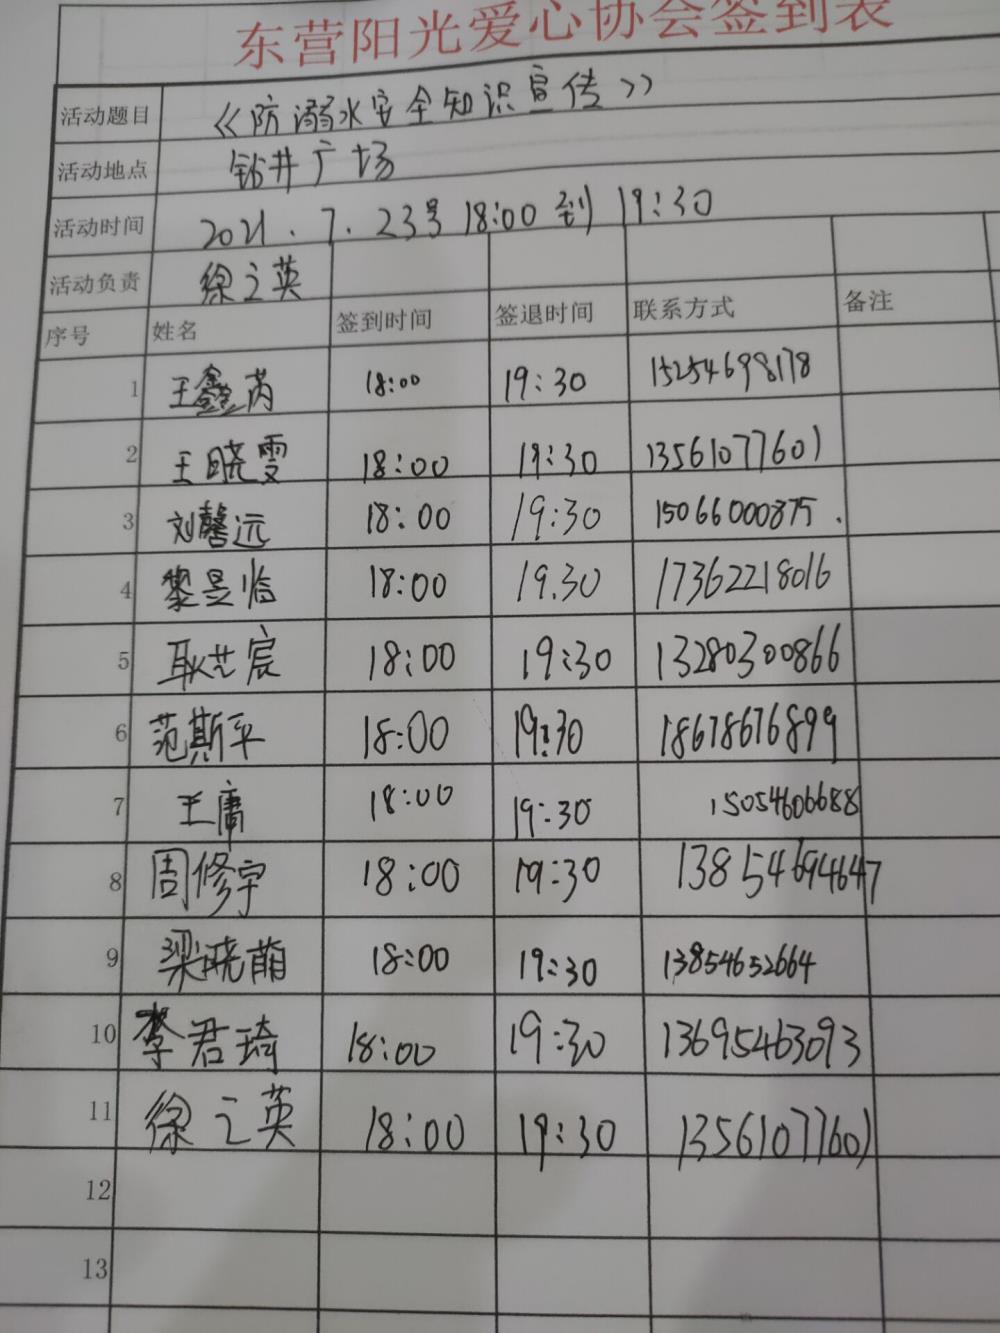 东营阳光爱心协会签到表
活动题目 《防溺水安全知识宣传》
活动地点 钻井广场
活动时间 2021.7.23号 18:00到19:30
活动负责 徐之英
序号 姓名 签到时间 签退时间 联系方式 备注
1 王鑫芮 18:00 19:30 15254698178
2 王晓雯 18:00 19:30 13561077601
3 刘馨远 18:00 19:30 15066000875.
4 黎昱临 18:00 19.30 17362218016
5 耿艺宸 18:00 19:30 13280300866
6 范斯平 18:00 19:30 18678676899
7 王庸 18:00 19:30 15054606688
8 周修宇 18:00 19:30 13854694647
9 梁晓萌 18:00 19:30 13854652664
10 李君琦 18:00 19:30 13695463093
11 徐之英 18:00 19:30 13561077601
12
13